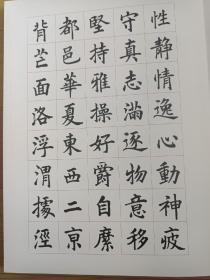 性靜情逸心動神疲
守真志滿逐物意移
堅持雅操好爵自縻
都邑華夏東西二京
背芒面洛浮渭據涇